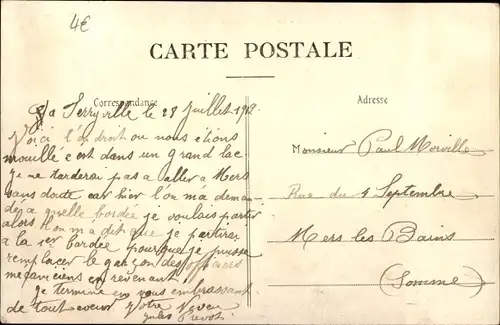 4€
CARTE POSTALE
Correspondance
Adresse
La Ferryville le 28 juillet 1912.
Voici l'endroit ou nous étions
mouillé c'est dans un grand lac
je ne tarderai pas a aller a Mers
sans doute car hier l'on m'a deman-
déa quelle bordée je voulais partir
alors l'on m'a dit que je partirai
a la 1er bordée pour que je puisse
remplacer le garçon des officiers
mecaniciens en revenant
je termine en vous embrassant
de tout coeur Votre Neveu
Jules Prevot
Monsieur Paul Morville
Rue du 4 Septembre
Mers les Bains
(Somme)